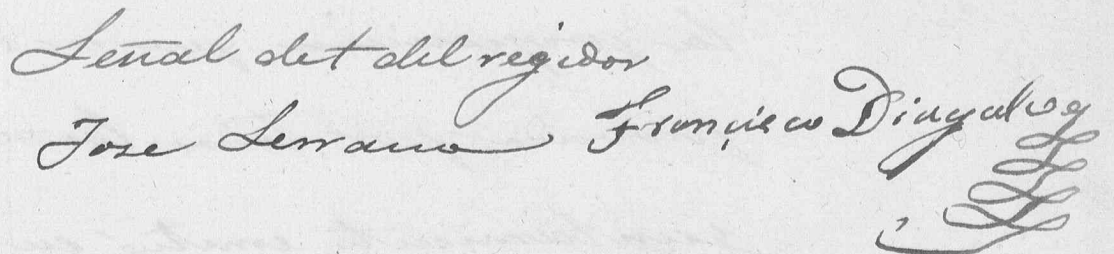 Señal de t del regidor
Jose Serrano Francisco